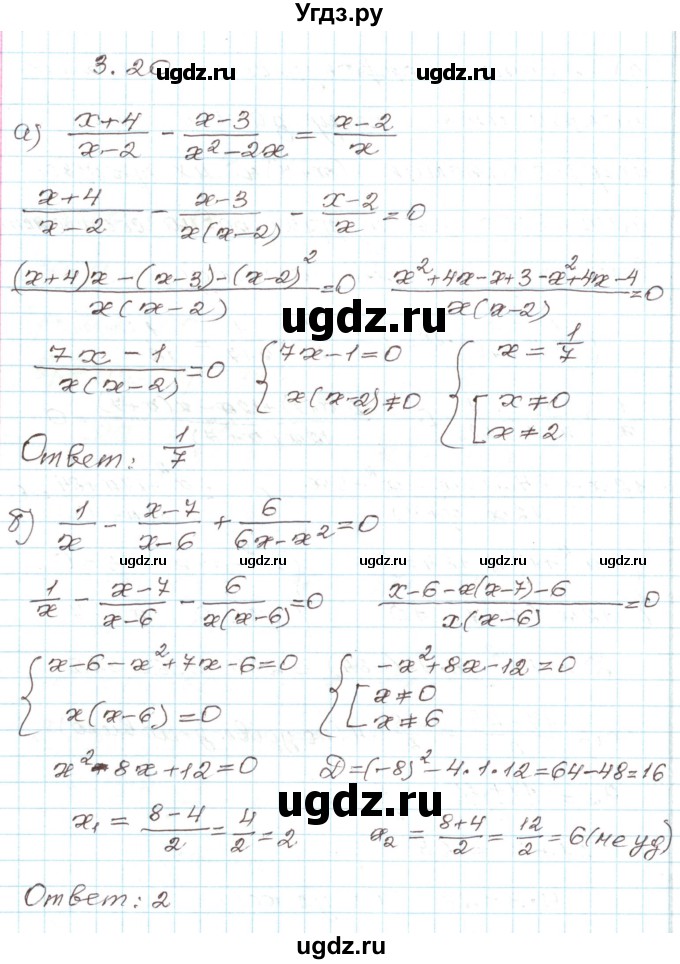 Угдз.ру
3.26
ugdz.ru ugdz.ru
а) (x+4)/(x-2) - (x-3)/(x²-2x) = (x-2)/x
(x+4)/(x-2) - (x-3)/(x(x-2)) - (x-2)/x = 0
((x+4)x-(x-3)-(x-2)²)/(x(x-2)) = 0 (x²+4x-x+3-x²+4x-4)/(x(x-2)) = 0
ugdz.ru
(7x-1)/(x(x-2)) = 0 { 7x-1=0 { x = 1/7
x(x-2)≠0 [ x≠0
x≠2
Ответ: 1/7
ugdz.ru ugdz.ru
б) 1/x - (x-7)/(x-6) + 6/(6x-x²) = 0
ugdz.ru ugdz.ru ugdz.ru ugdz.ru
1/x - (x-7)/(x-6) - 6/(x(x-6)) = 0 (x-6-x(x-7)-6)/(x(x-6)) = 0
{ x-6-x²+7x-6=0 { -x²+8x-12=0
x(x-6)=0 [ x≠0
x≠6
x²-8x+12=0 D=(-8)²-4·1·12=64-48=16
ugdz.ru
x₁ = (8-4)/2 = 4/2 = 2 x₂ = (8+4)/2 = 12/2 = 6(не уд)
Ответ: 2
ugdz.ru ugdz.ru
ugdz.ru